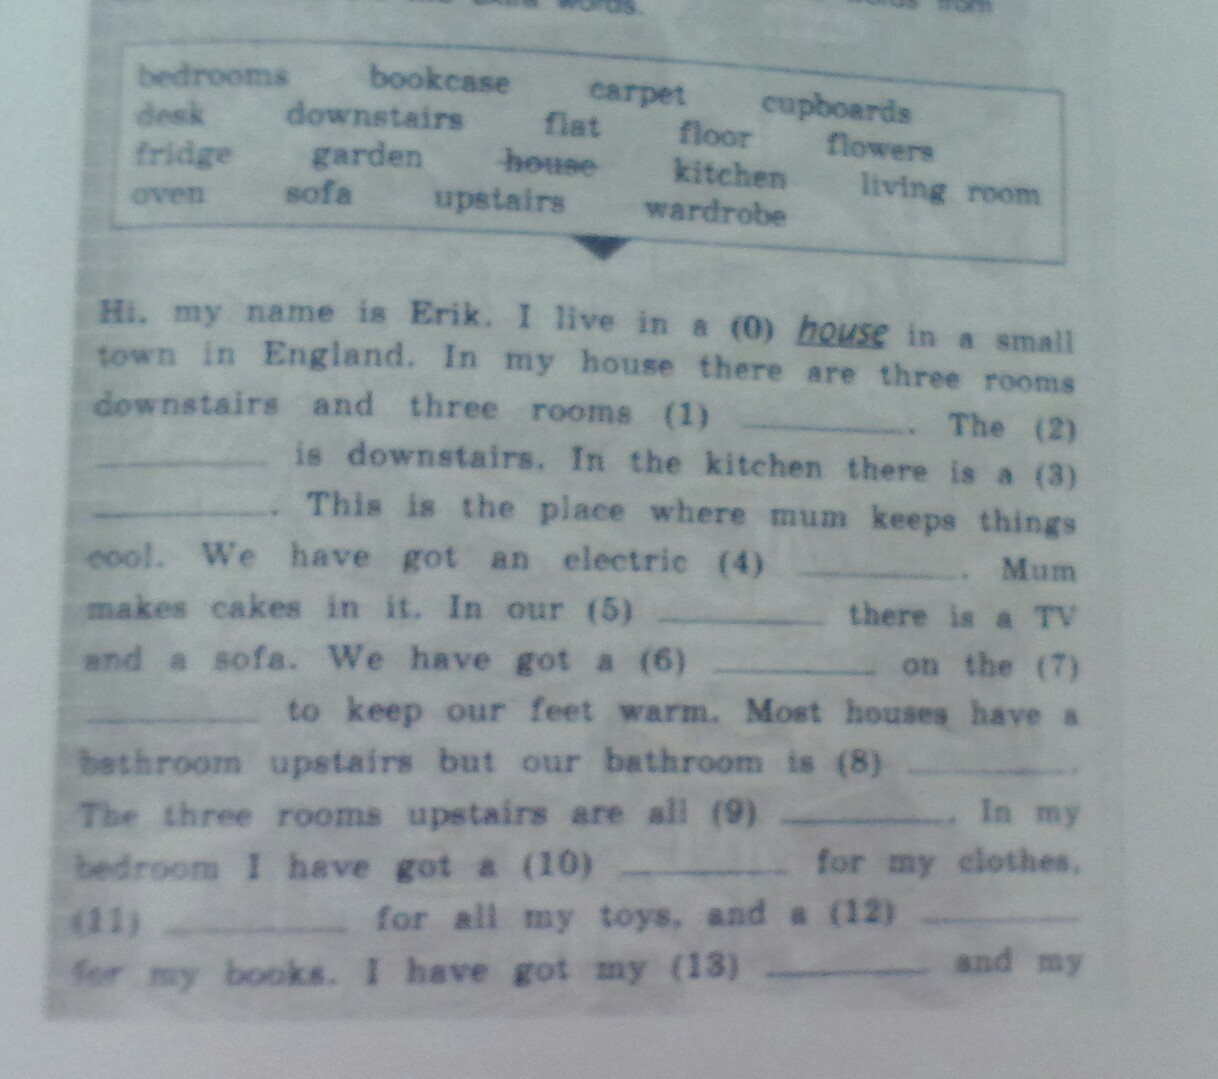 words. words from
bedrooms bookcase carpet cupboards
desk downstairs flat floor flowers
fridge garden house kitchen living room
oven sofa upstairs wardrobe
Hi, my name is Erik. I live in a (0) house in a small
town in England. In my house there are three rooms
downstairs and three rooms (1) ________. The (2)
________ is downstairs. In the kitchen there is a (3)
________. This is the place where mum keeps things
cool. We have got an electric (4) ________. Mum
makes cakes in it. In our (5) ________ there is a TV
and a sofa. We have got a (6) ________ on the (7)
________ to keep our feet warm. Most houses have a
bathroom upstairs but our bathroom is (8) ________.
The three rooms upstairs are all (9) ________. In my
bedroom I have got a (10) ________ for my clothes,
(11) ________ for all my toys, and a (12) ________
for my books. I have got my (13) ________ and my